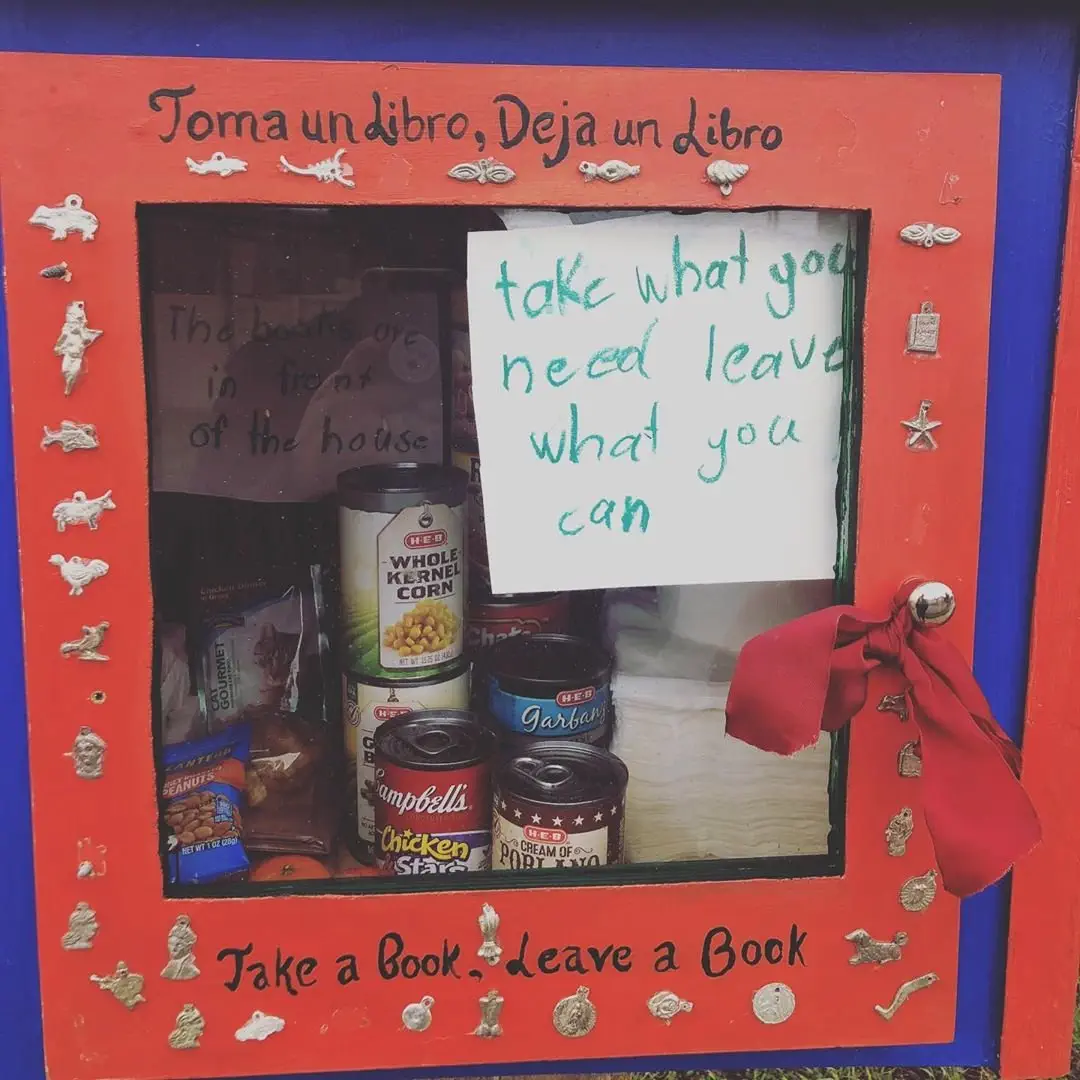 Toma un Libro, Deja un Libro
take what you
need leave
what you
can
The books are
in front
of the house
H-E-B
WHOLE
KERNEL
CORN
NET WT 15.25 OZ
H-E-B
CAT
GOURMET
H-E-B
PEANUTS
NET WT 1 OZ (28g)
Campbell's
Chicken
Stars
H-E-B
CREAM OF
POBLANO
Take a Book, Leave a Book